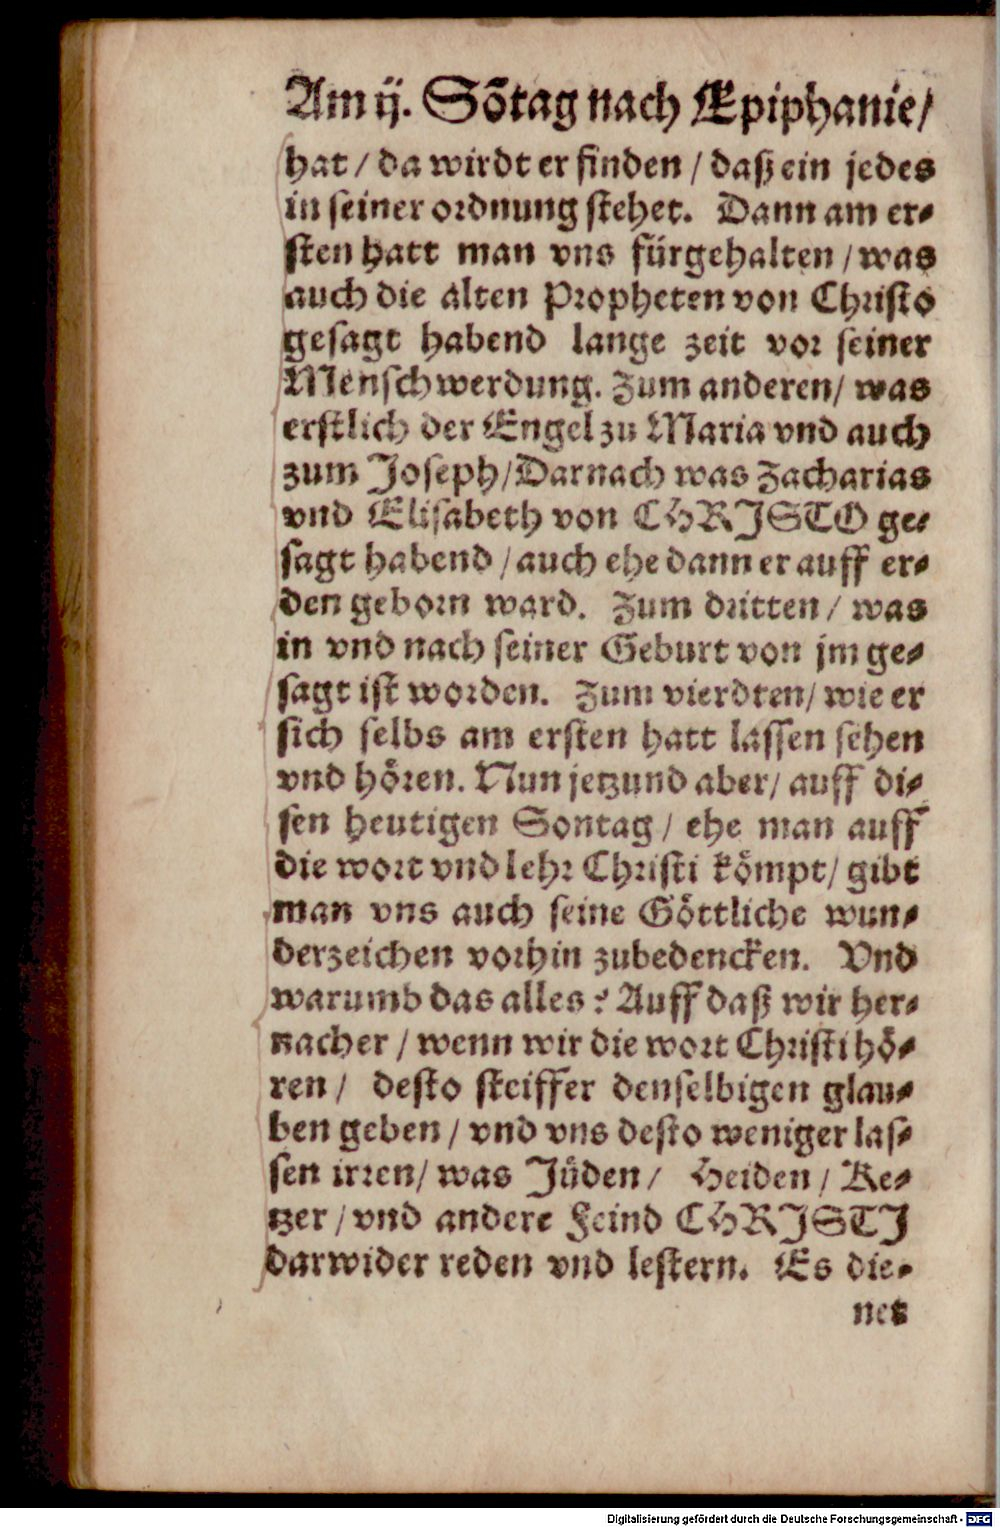 Am ij. Sõtag nach Epiphanie/
hat / da wirdt er finden / daß ein jedes
in seiner ordnung stehet. Dann am er-
sten hatt man vns fürgehalten / was
auch die alten Propheten von Christo
gesagt habend lange zeit vor seiner
Menschwerdung. Zum anderen/ was
erstlich der Engel zu Maria vnd auch
zum Joseph/ Darnach was Zacharias
vnd Elisabeth von CHRJSTO ge-
sagt habend / auch ehe dann er auff er-
den geborn ward. Zum dritten / was
in vnd nach seiner Geburt von jm ge-
sagt ist worden. Zum vierdten/ wie er
sich selbs am ersten hatt lassen sehen
vnd hören. Nun jetzund aber/ auff di-
sen heutigen Sontag / ehe man auff
die wort vnd lehr Christi kömpt/ gibt
man vns auch seine Göttliche wun-
derzeichen vorhin zubedencken. Vnd
warumb das alles? Auff daß wir her-
nacher / wenn wir die wort Christi hö-
ren / desto steiffer denselbigen glau-
ben geben / vnd vns desto weniger las-
sen irren/ was Jüden / Heiden / Ke-
tzer / vnd andere Feind CHRJSTJ
darwider reden vnd lestern. Es die-
net
Digitalisierung gefördert durch die Deutsche Forschungsgemeinschaft - DFG